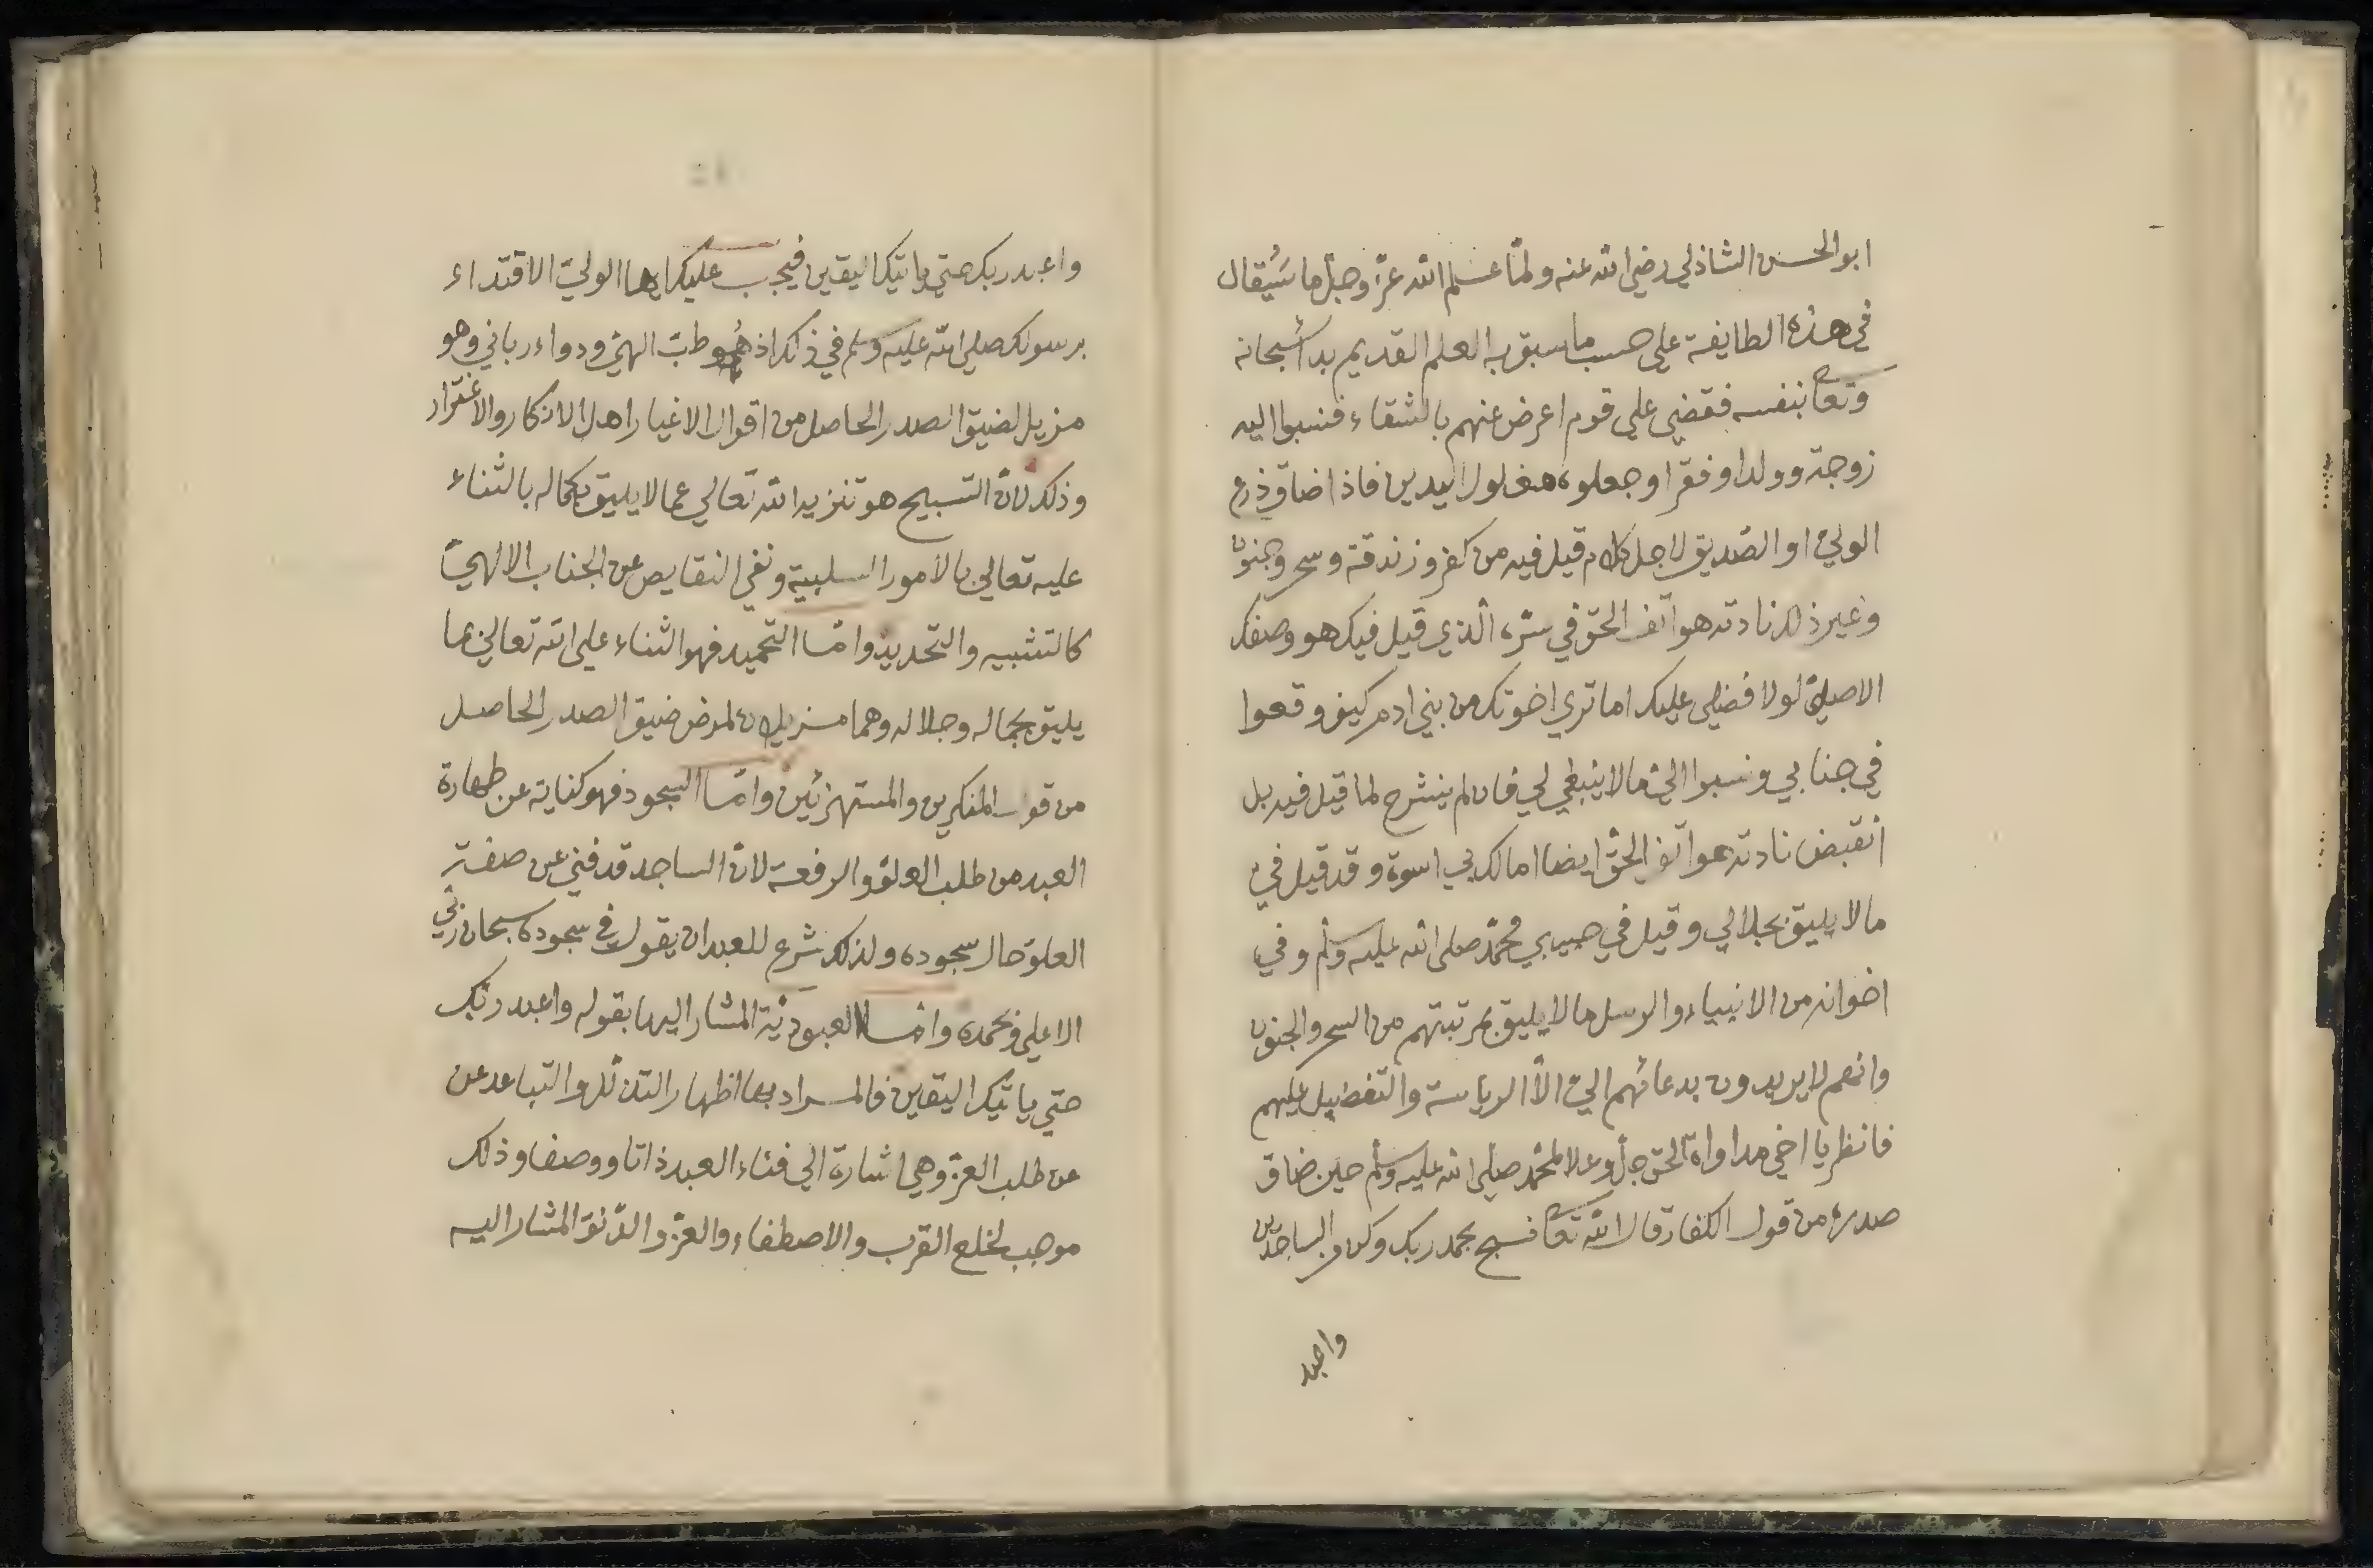 ابو الحسن الشاذلي رضي الله عنه ولمّا علم الله عزّ وجلّ ما سَيُقال
في هذه الطايفة على حسب ما سبق به العلم القديم بدأ سبحانه
وتعا بنفسه فقضى على قوم اعرض عنهم بالشقاء فنسبوا اليه
زوجة وولدا وفقرا وجعلوه مغلول اليدين فاذا ضاق ذرع
الوليّ او الصّديق لاجل كلام قيل فيه من كفر وزندقة وسحر وجنون
وغير ذلك نادته هواتف الحق في سرّه الّذي قيل فيك هو وصفك
الاصليّ لولا فضلي عليك اما تري اخوتك من بني ادم كيف وقعوا
في جنابي ونسبوا اليّ ما لا ينبغي لي فان لم ينشرح لما قيل فيه بل
انقبض نادته هواتف الحقّ ايضا اما لك بي اسوة وقد قيل فيّ
ما لا يليق بجلالي وقيل في حبيبي محمّد صلى الله عليه وسلم وفي
اخوانه من الانبياء والرسل ما لا يليق بمرتبتهم من السحر والجنون
وانهم لا يريدون بدعائهم اليّ الاّ الرياسة والتفضيل عليهم
فانظر يا اخي مداواة الحق جلّ وعلا لمحمّد صلى الله عليه وسلم حين ضاق
صدره من قول الكفار قال الله تعا فسبح بحمد ربك وكن من الساجدين
واعبد
واعبد ربك حتي ياتيك اليقين فيجب عليك ايها الوليّ الاقتداء
برسولك صلى الله عليه وسلم في ذلك اذ هو طبّ الهيّ ودواء رباني وهو
مزيل لضيق الصدر الحاصل من اقوال الاغيار اهل الانكار والاغترار
وذلك لانّ التسبيح هو تنزيه الله تعالي عما لا يليق بكماله بالثناء
عليه تعالي بالامور السلبية ونفي النقايص عن الجناب الالهيّ
كالتشبيه والتحديد وامّا التحميد فهو الثناء على الله تعالي بما
يليق بجماله وجلاله وهما مزيلان لمرض ضيق الصدر الحاصل
من قول المنكرين والمستهزئين وامّا السجود فهو كناية عن طهارة
العبد من طلب العلوّ والرفعة لانّ الساجد قد فني عن صفة
العلوّ حال سجوده ولذلك شرع للعبد ان يقول في سجوده سبحان ربّي
الاعلى وبحمده وامّا العبوديّة المشار اليها بقوله واعبد ربّك
حتي ياتيك اليقين فالمراد بها اظهار التذلّل والتباعد عن
عن طلب العزّ وهي اشارة الي فناء العبد ذاتا ووصفا وذلك
موجب لخلع القرب والاصطفاء والعزّ والدّنوّ المشار اليه